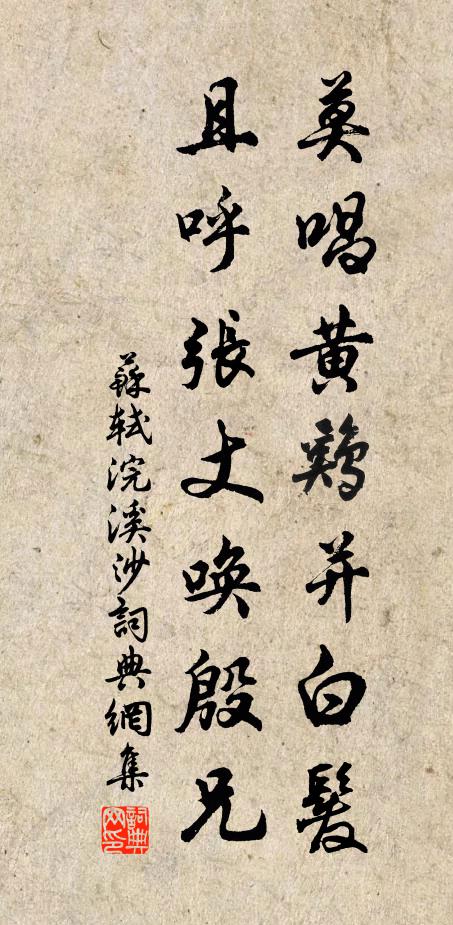 莫唱黄鷄并白髮
且呼張丈喚殷兄
蘇軾浣溪沙詞典網集
詞典網印